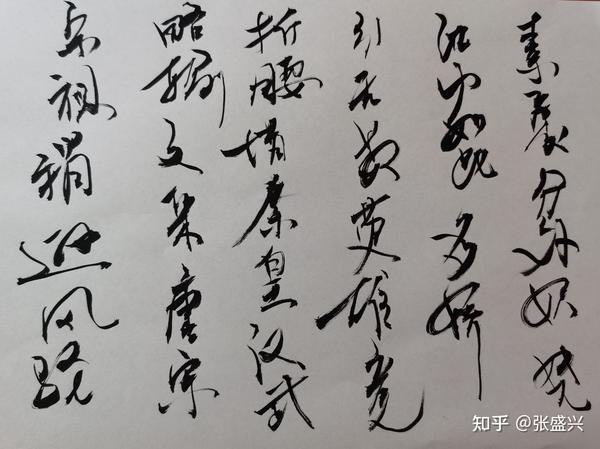 素裹分外妖娆
江山如此多娇
引无数英雄竞
折腰惜秦皇汉武
略输文采唐宗
宋祖稍逊风骚
知乎 @张盛兴